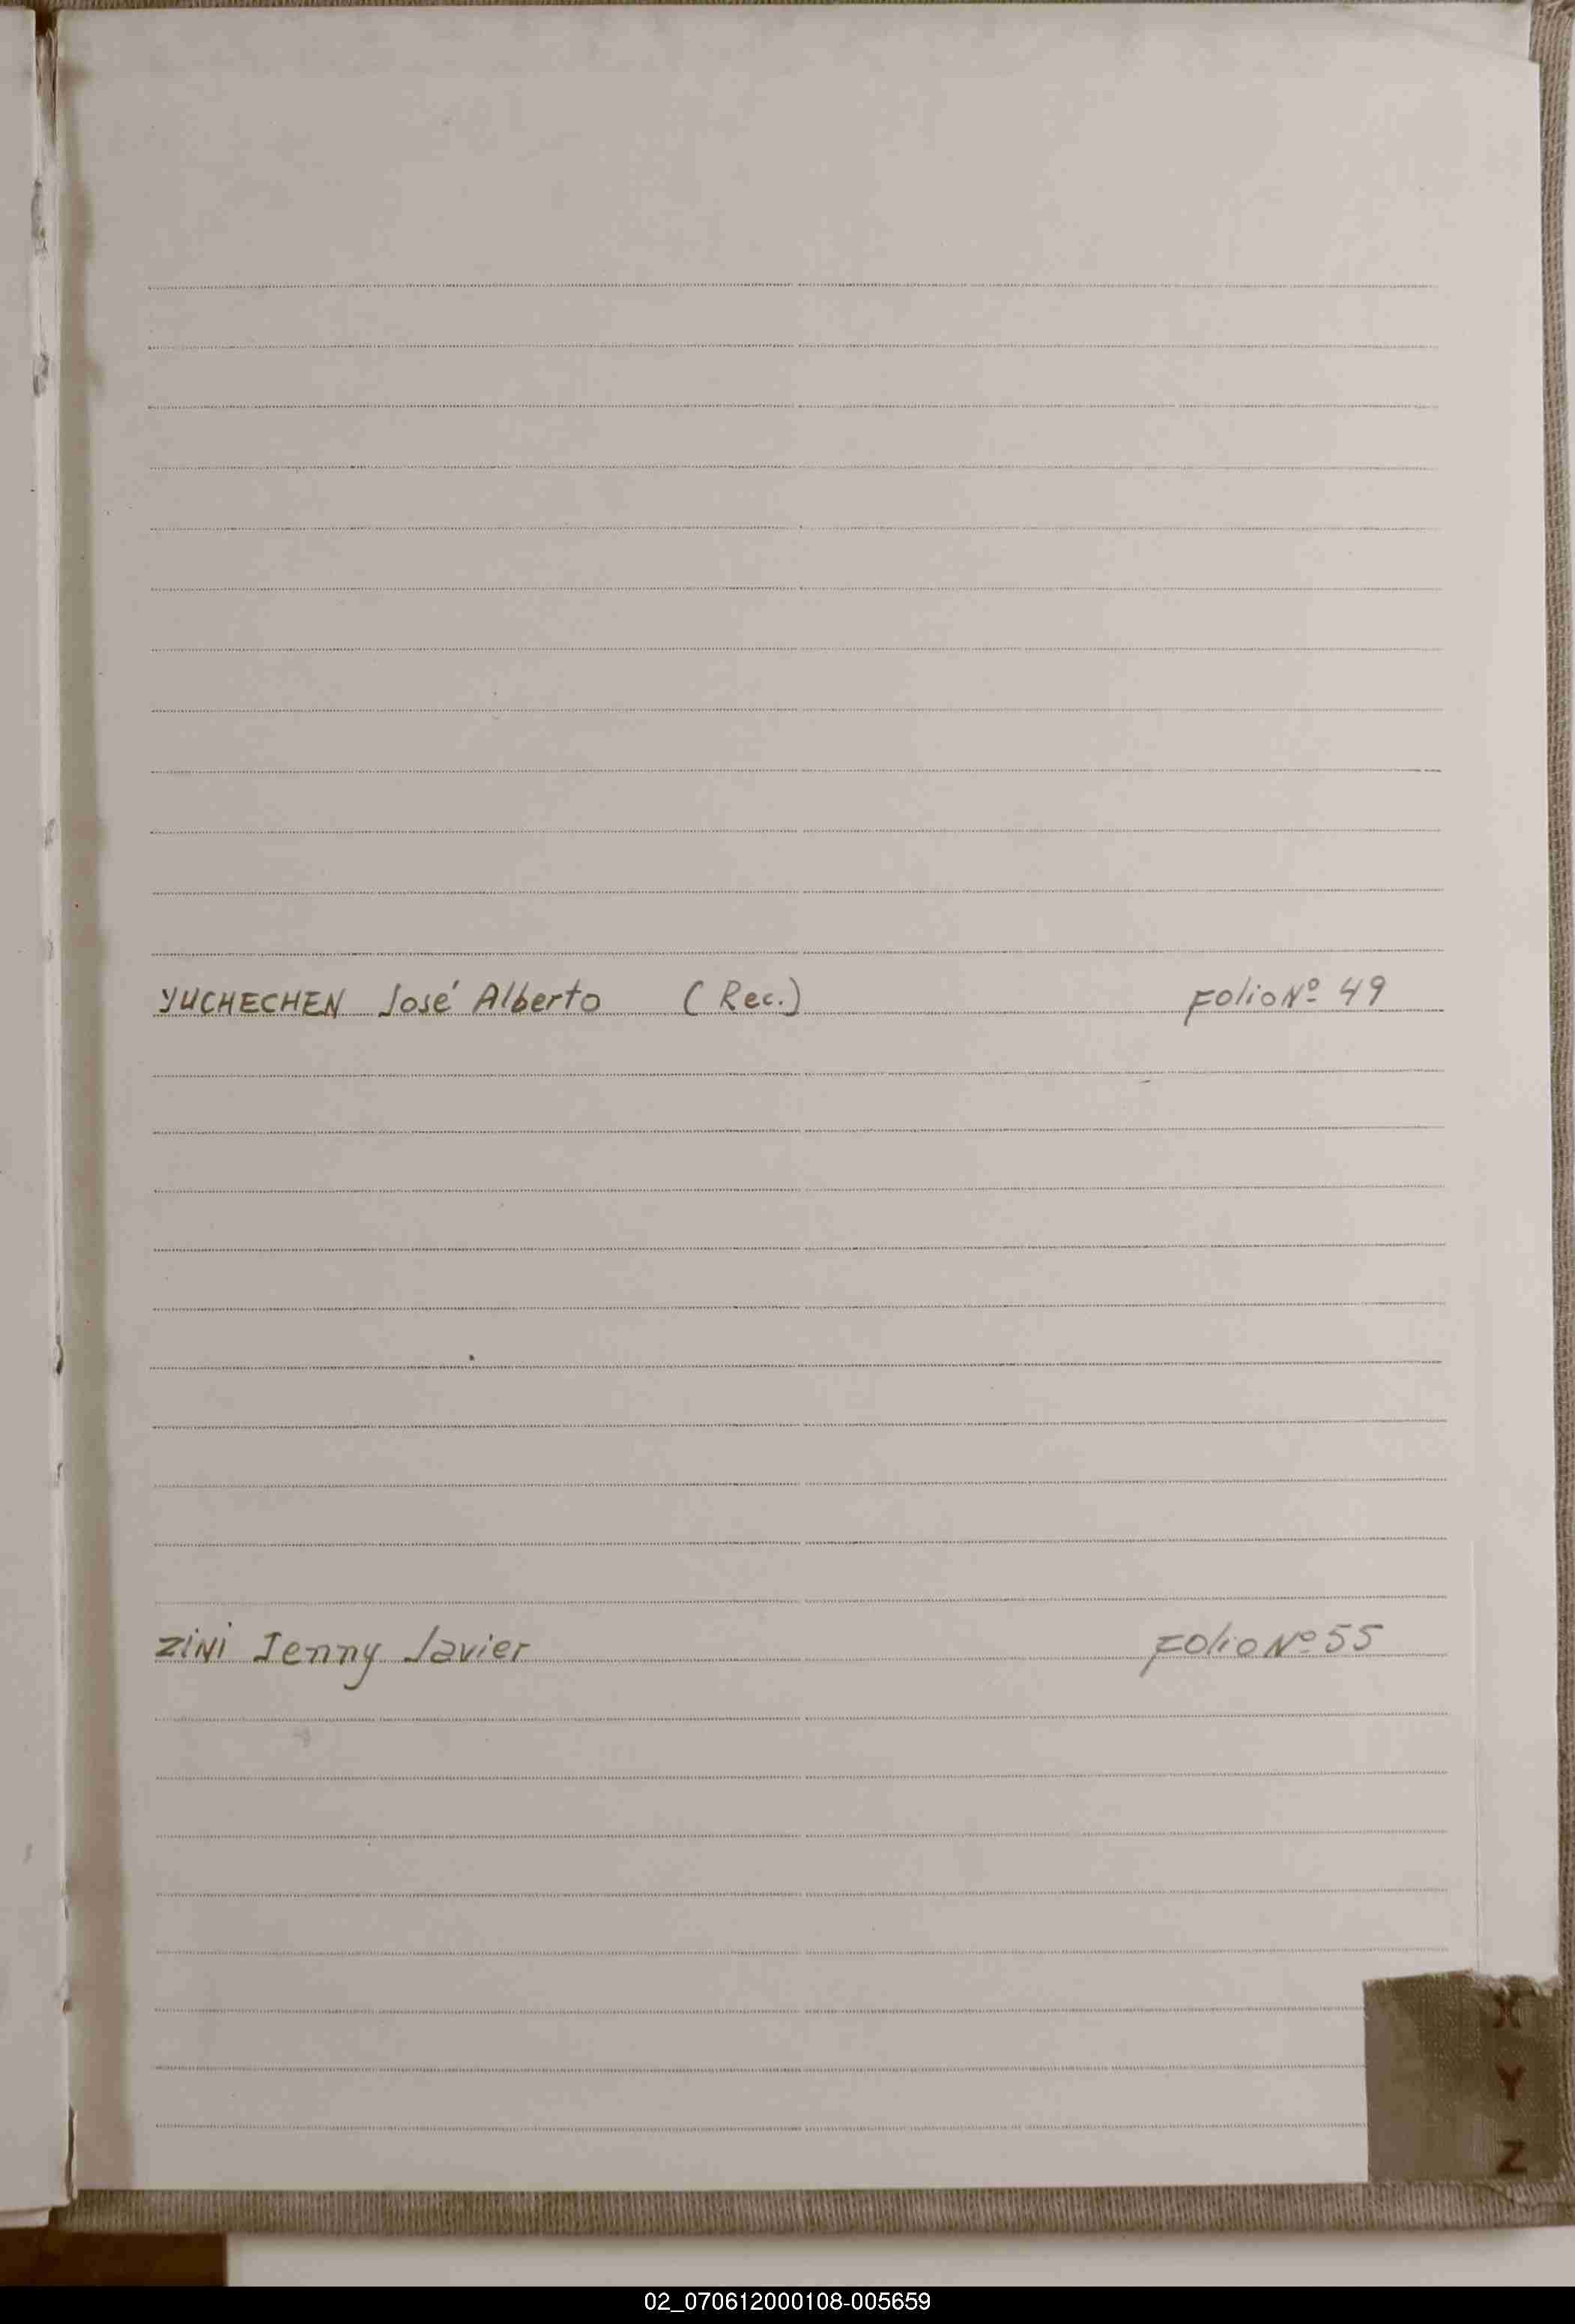 YUCHECHEN José Alberto (Rec.) Folio Nº 49
ZINI Jenny Javier Folio Nº 55
X
Y
Z
02_070612000108-005659